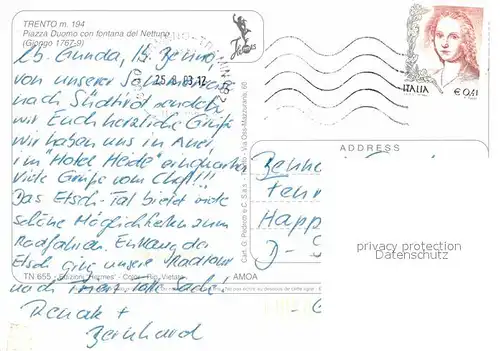 TRENTO m. 194
Piazza Duomo con fontana del Nettuno
(Giongo 1767-9)
Lb. Gunda, lb. Benno
von unserer
nach Südtirol senden
wir Euch herzliche Grüße
wir haben uns in Auer
im "Hotel Heide" einquartiert
Viele Grüße vom Chef!!!
Das Etsch-Tal bietet viele
schöne Möglichkeiten zum
Radfahren. Entlang der
Etsch ging unsere Radtour
nach Trient tolle Sache!
Renate +
Bernhard
TN 655 - Edizioni "Hermes" - Color - Rip. Vietata
AMOA
25.8.03.12
Cart. G. Pedrotti e C. S.a.s. - Trento - Via Oss-Mazzurana, 60
ITALIA € 0,41
ADDRESS
Benno
Tenn
Happ
D-
privacy protection
Datenschutz